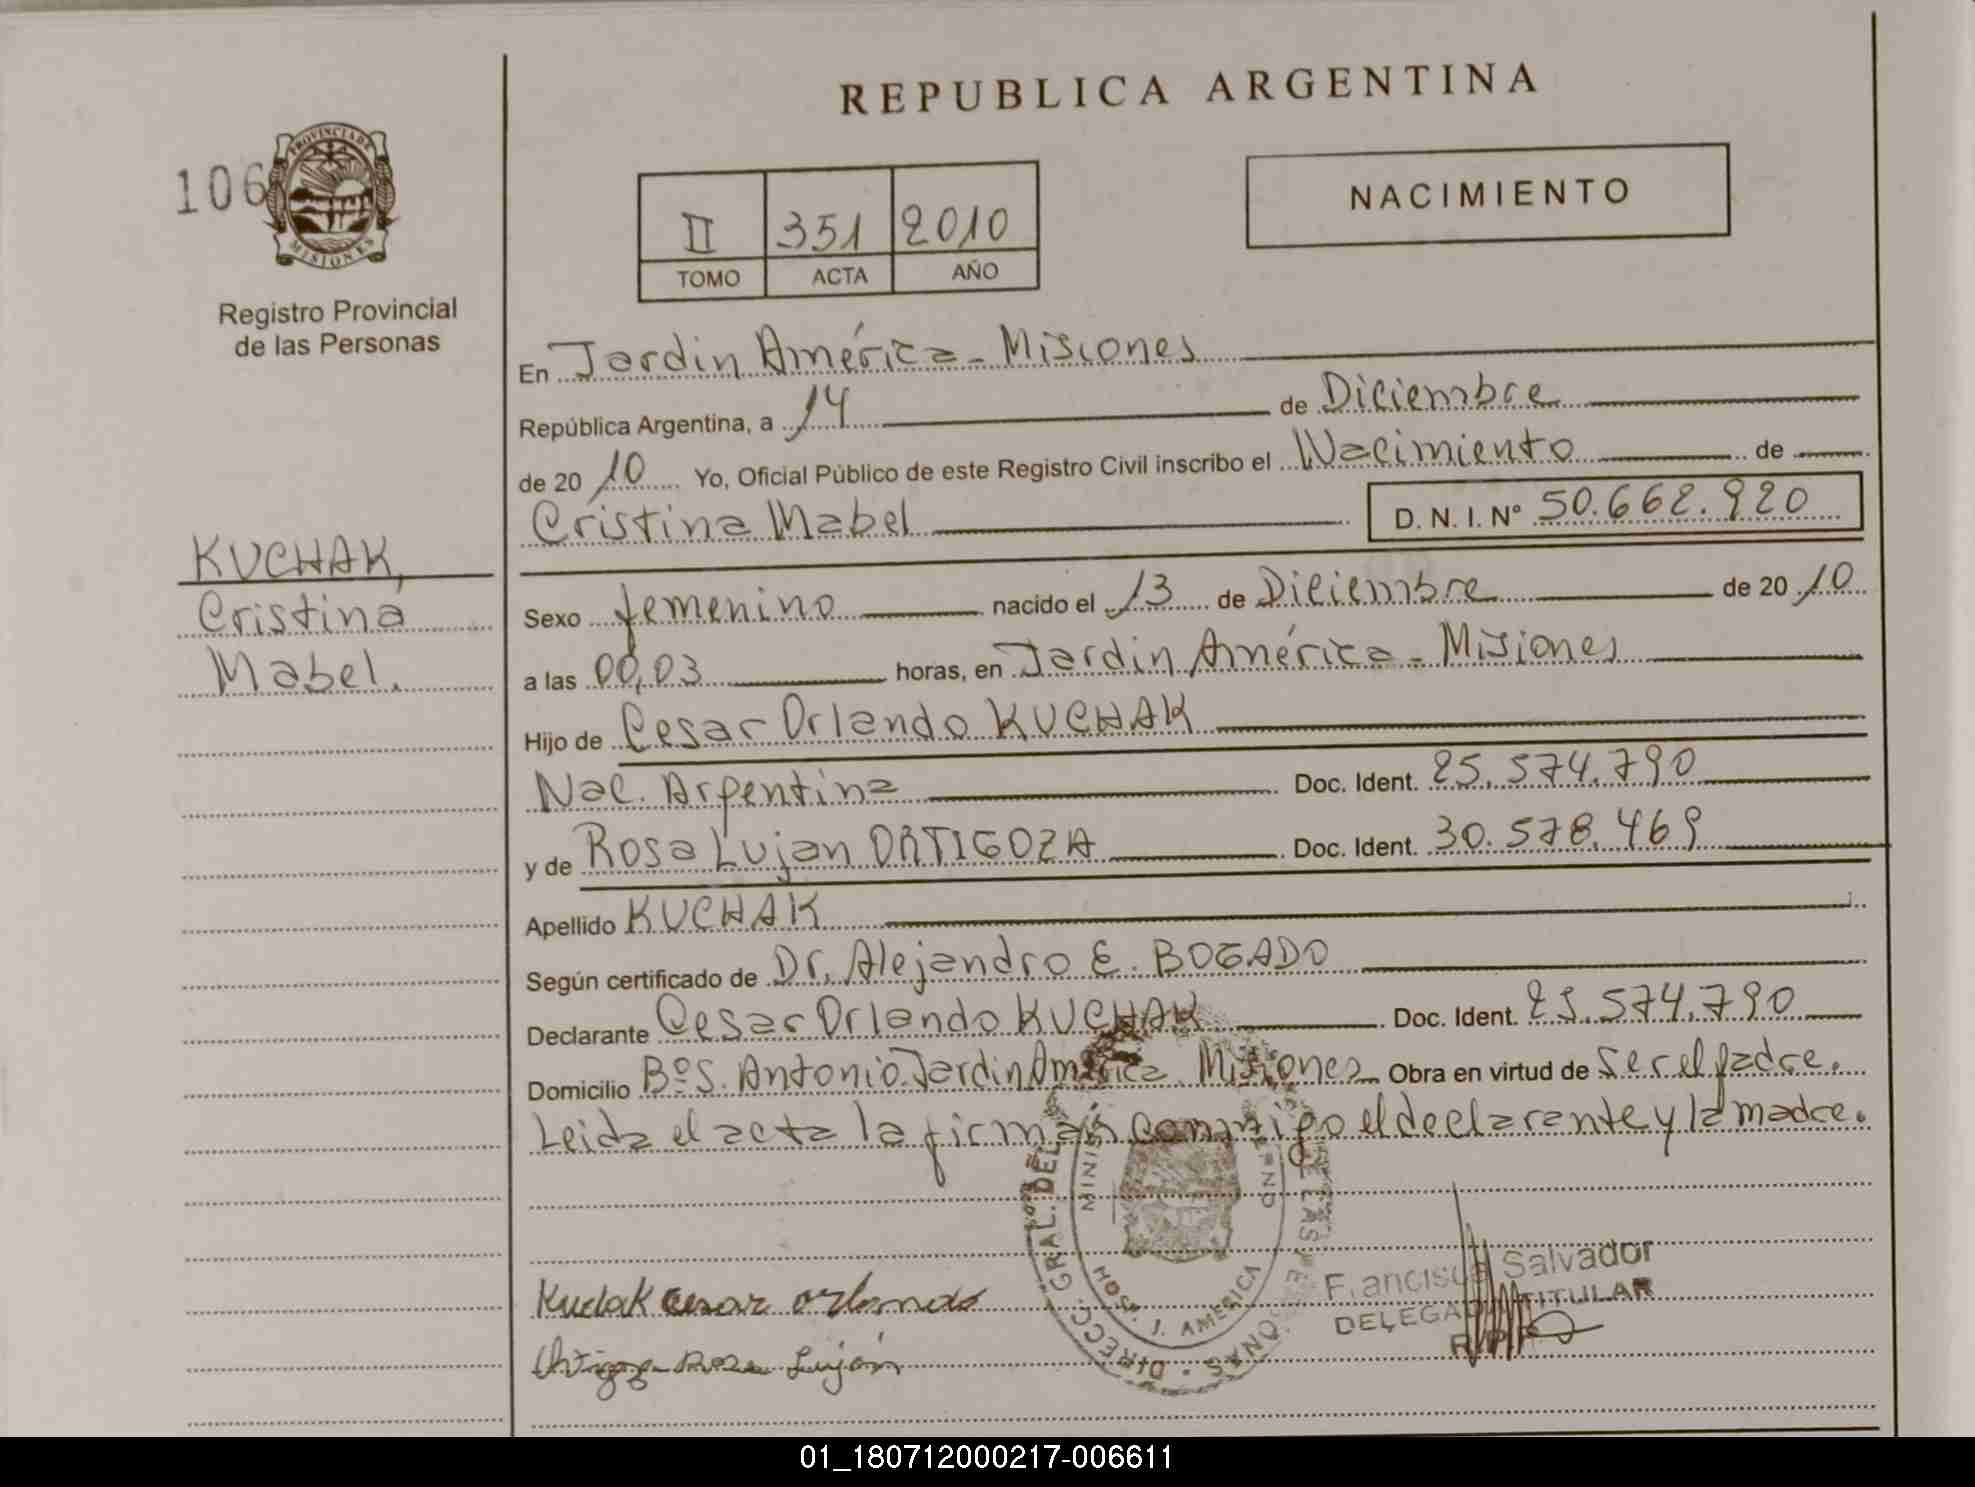 REPUBLICA ARGENTINA
106
PROVINCIA DE
MISIONES
Registro Provincial
de las Personas
II 351 2010
TOMO ACTA AÑO
NACIMIENTO
En Jardin América - Misiones
República Argentina, a 14 de Diciembre
de 20 10 Yo, Oficial Público de este Registro Civil inscribo el Nacimiento de
Cristina Mabel D. N. I. N° 50.662.920
KUCHAK,
Cristina
Mabel.
Sexo femenino nacido el 13 de Diciembre de 20 10
a las 00,03 horas, en Jardin América - Misiones
Hijo de Cesar Orlando KUCHAK
Nac. Argentina Doc. Ident. 25.574.790
y de Rosa Lujan ORTIGOZA Doc. Ident. 30.578.469
Apellido KUCHAK
Según certificado de Dr. Alejandro E. BOGADO
Declarante Cesar Orlando KUCHAK Doc. Ident. 25.574.790
Domicilio Bº S. Antonio. Jardin América Misiones Obra en virtud de Ser el padre.
Leida el acta la firman conmigo el declarante y la madre.
DIRECC. GRAL. DEL DE LAS PERSONAS
HOSP. J. AMERICA
Kuchak cesar orlando
Ortigoza Rosa Luján
Francisca Salvador
DELEGADA TITULAR
R.P.P.
01_180712000217-006611